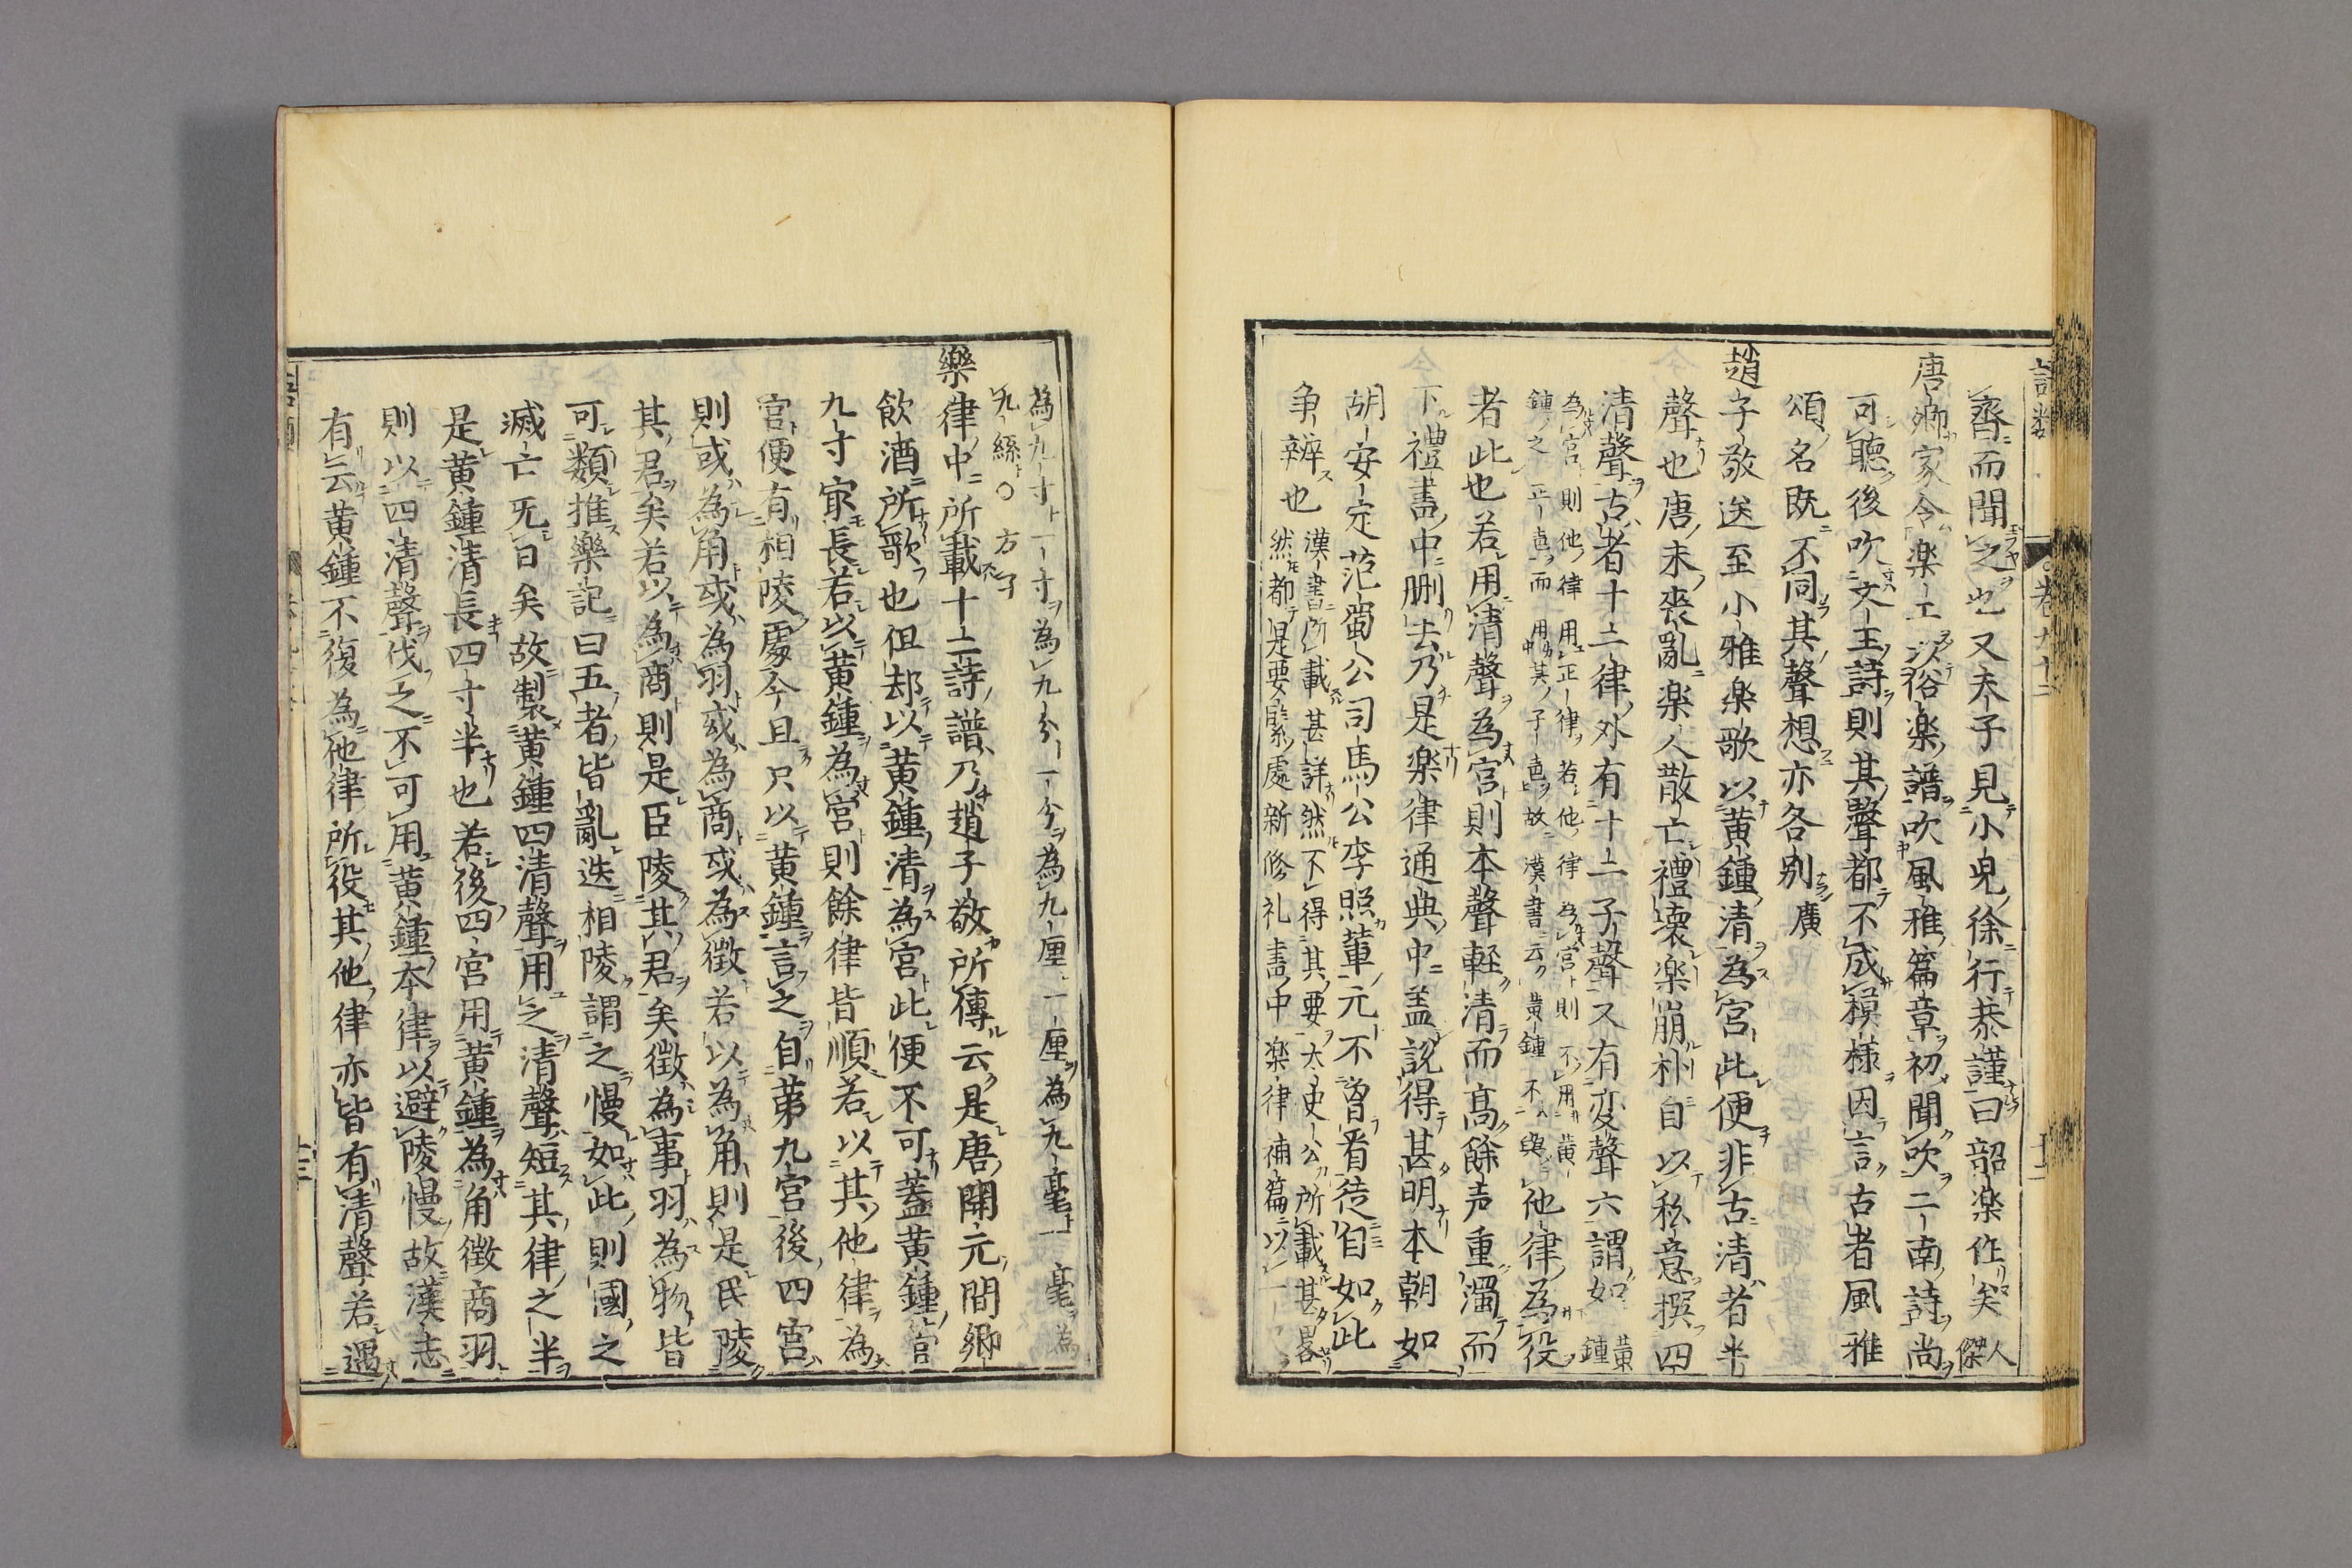 語類
卷九十二
十二
齊而聞之也又夫子見小兒徐行恭謹曰韶楽作矣人傑
唐卿家令楽工以俗楽譜吹風雅篇章初聞吹二南詩尚
可聽後吹文王詩則其聲都不成模樣因言古者風雅
頌名既不同其聲想亦各别廣
趙子敬送至小雅楽歌以黄鍾清為宮此便非古清者半
聲也唐末喪亂楽人散亡禮壊楽崩朴自以私意撰四
清聲古者十二律外有十二子聲又有変聲六謂如黄鍾
為宮則他律用正律若他律為宮則不用黄
鍾之正声而用其子声故漢書云黄鍾不與他律為役
者此也若用清聲為宮則本聲軽清而髙餘声重濁而
下禮書中刪去乃是楽律通典中盖説得甚明本朝如
胡安定范蜀公司馬公李照軰元不曽看徒自如此
争辨也漢書所載甚詳然不得其要太史公所載甚畧
然都是要緊處新修礼書中楽律補篇以一
為九寸一寸為九分一分為九厘一厘為九毫一毫為
九絲〇方子
樂律中所載十二詩譜乃趙子敬所傳云是唐開元間鄉
飲酒所歌也但却以黄鍾清為宮此便不可蓋黄鍾管
九寸㝡長若以黄鍾為宮則餘律皆順若以其他律為
宮便有相陵處今且只以黄鍾言之自第九宮後四宮
則或為角或為羽或為商或為徴若以為角則是民陵
其君矣若以為商則是臣陵其君矣徴為事羽為物皆
可類推樂記曰五者皆亂迭相陵謂之慢如此則國之
滅亡旡日矣故製黄鍾四清聲用之清聲短其律之半
是黄鍾清長四寸半也若後四宮用黄鍾為角徴商羽
則以四清聲伐之不可用黄鍾本律以避陵慢故漢志
有云黄鍾不復為他律所役其他律亦皆有清聲若遇
十三